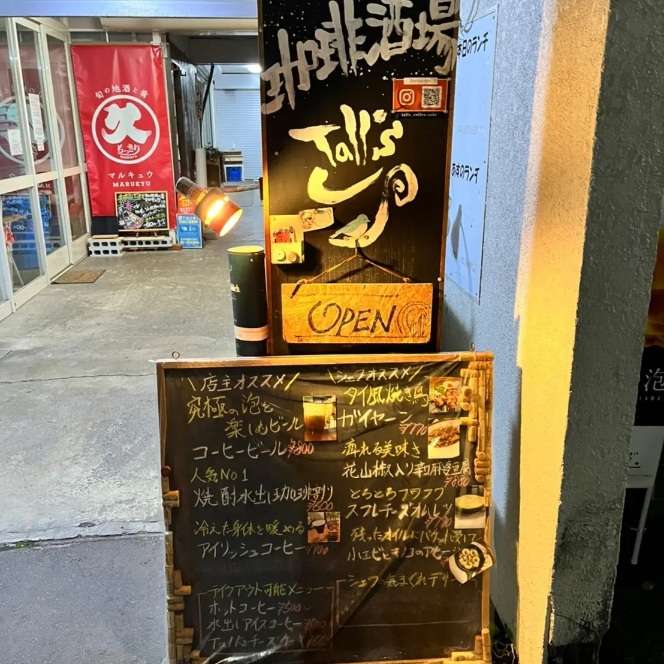 珈琲酒場
Tall's
OPEN
本日のランチ
旬の地酒と肴
久
マルキュウ
MARUKYU
\店主オススメ/
究極の泡を
楽しむビール
コーヒービール ¥800
人気No1
焼酎水出し珈琲割り
¥600
冷えた身体を暖める
アイリッシュコーヒー ¥700
テイクアウト可能メニュー
ホットコーヒー ¥500
水出しアイスコーヒー
\シェフオススメ/
タイ風焼き鳥
ガイヤーン
¥770
痺れる美味さ
花山椒入り麻婆豆腐
とろとろフワフワ
スフレチーズオムレツ
残ったオイルに
小エビとキノコのアヒージョ
泡